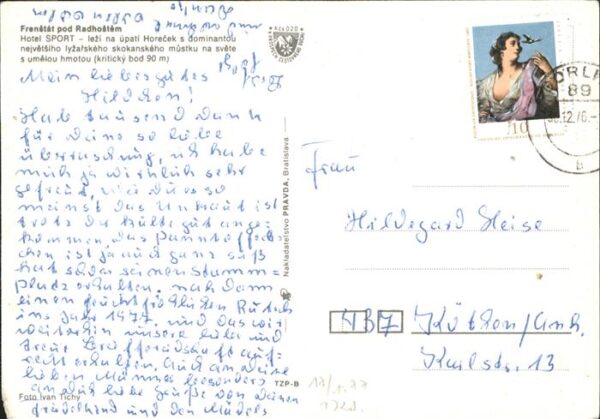 Frenštát pod Radhoštěm
Hotel SPORT – leží na úpatí Horeček s dominantou
největšího lyžařského skokanského můstku na světe
s umělou hmotou (kritický bod 90 m)
Mein liebes gutes
Hildchen!
Hab tausend Dank
für Deine so liebe
Überraschung, ich habe
mich ja wirklich sehr
gefreut, wie Du so
meinst das Unkraut ist
trotz der Kälte gut ange-
kommen, das Pantöffel-
chen ist ja auch ganz süß
hat schon seinen Stamm=
platz erhalten. nach dem
einen feuchtfröhlichen Rutsch
ins Jahr 1977. und das wir
weiterhin unsere liebe und
treue Brieffreundschaft auf-
recht erhalten. Auch an Deine
lieben Männer besonders
an Dich liebe Grüße von Deiner
und den Mädels
Foto Ivan Tichý
Nakladatelstvo PRAVDA, Bratislava
TZP-B
10
89
.12.76.-
b
Frau
Hildegard Heise
437 Köthen/Anh.
Karlstr. 13